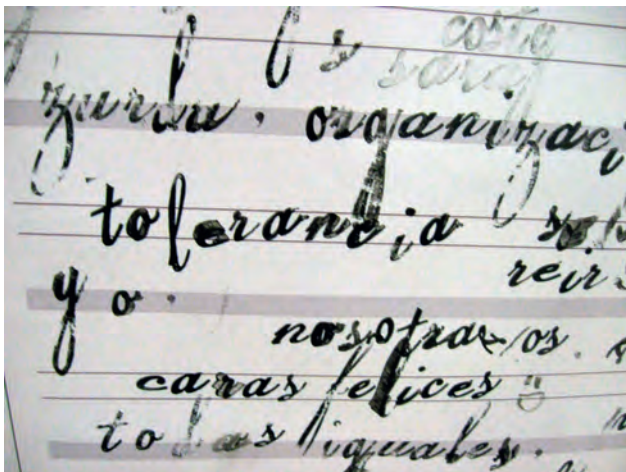 costa
sara
zurda. organizaci
tolerancia
reir
yo.
nosotras/os.
caras felices :)
todas iguales.